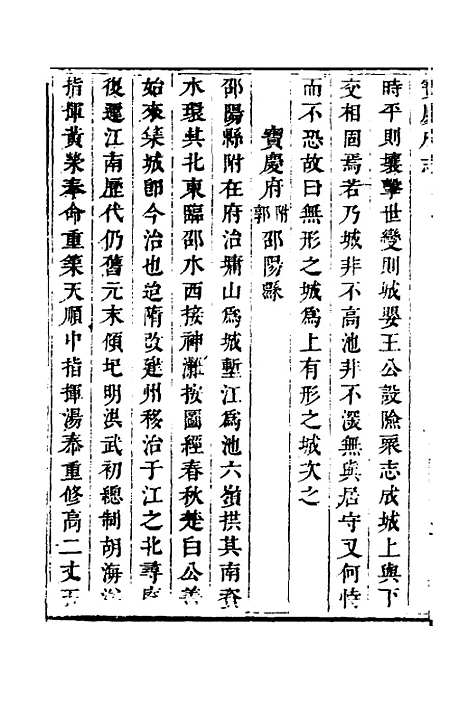 寶慶府志
時平則壤擊世變則城嬰王公設險衆志成城上與下
交相固焉若乃城非不高池非不深無與居守又何恃
而不恐故曰無形之城爲上有形之城次之
寶慶府附郭邵陽縣
邵陽縣附在府治鏞山爲城塹江爲池六嶺拱其南資
水環其北東臨邵水西接神灘按圖經春秋楚白公善
始來築城卽今治也迨隋改建州移治于江之北尋
復遷江南歷代仍舊元末傾圮明洪武初總制胡海洋
指揮黃榮奉命重築天順中指揮湯泰重修高二丈五